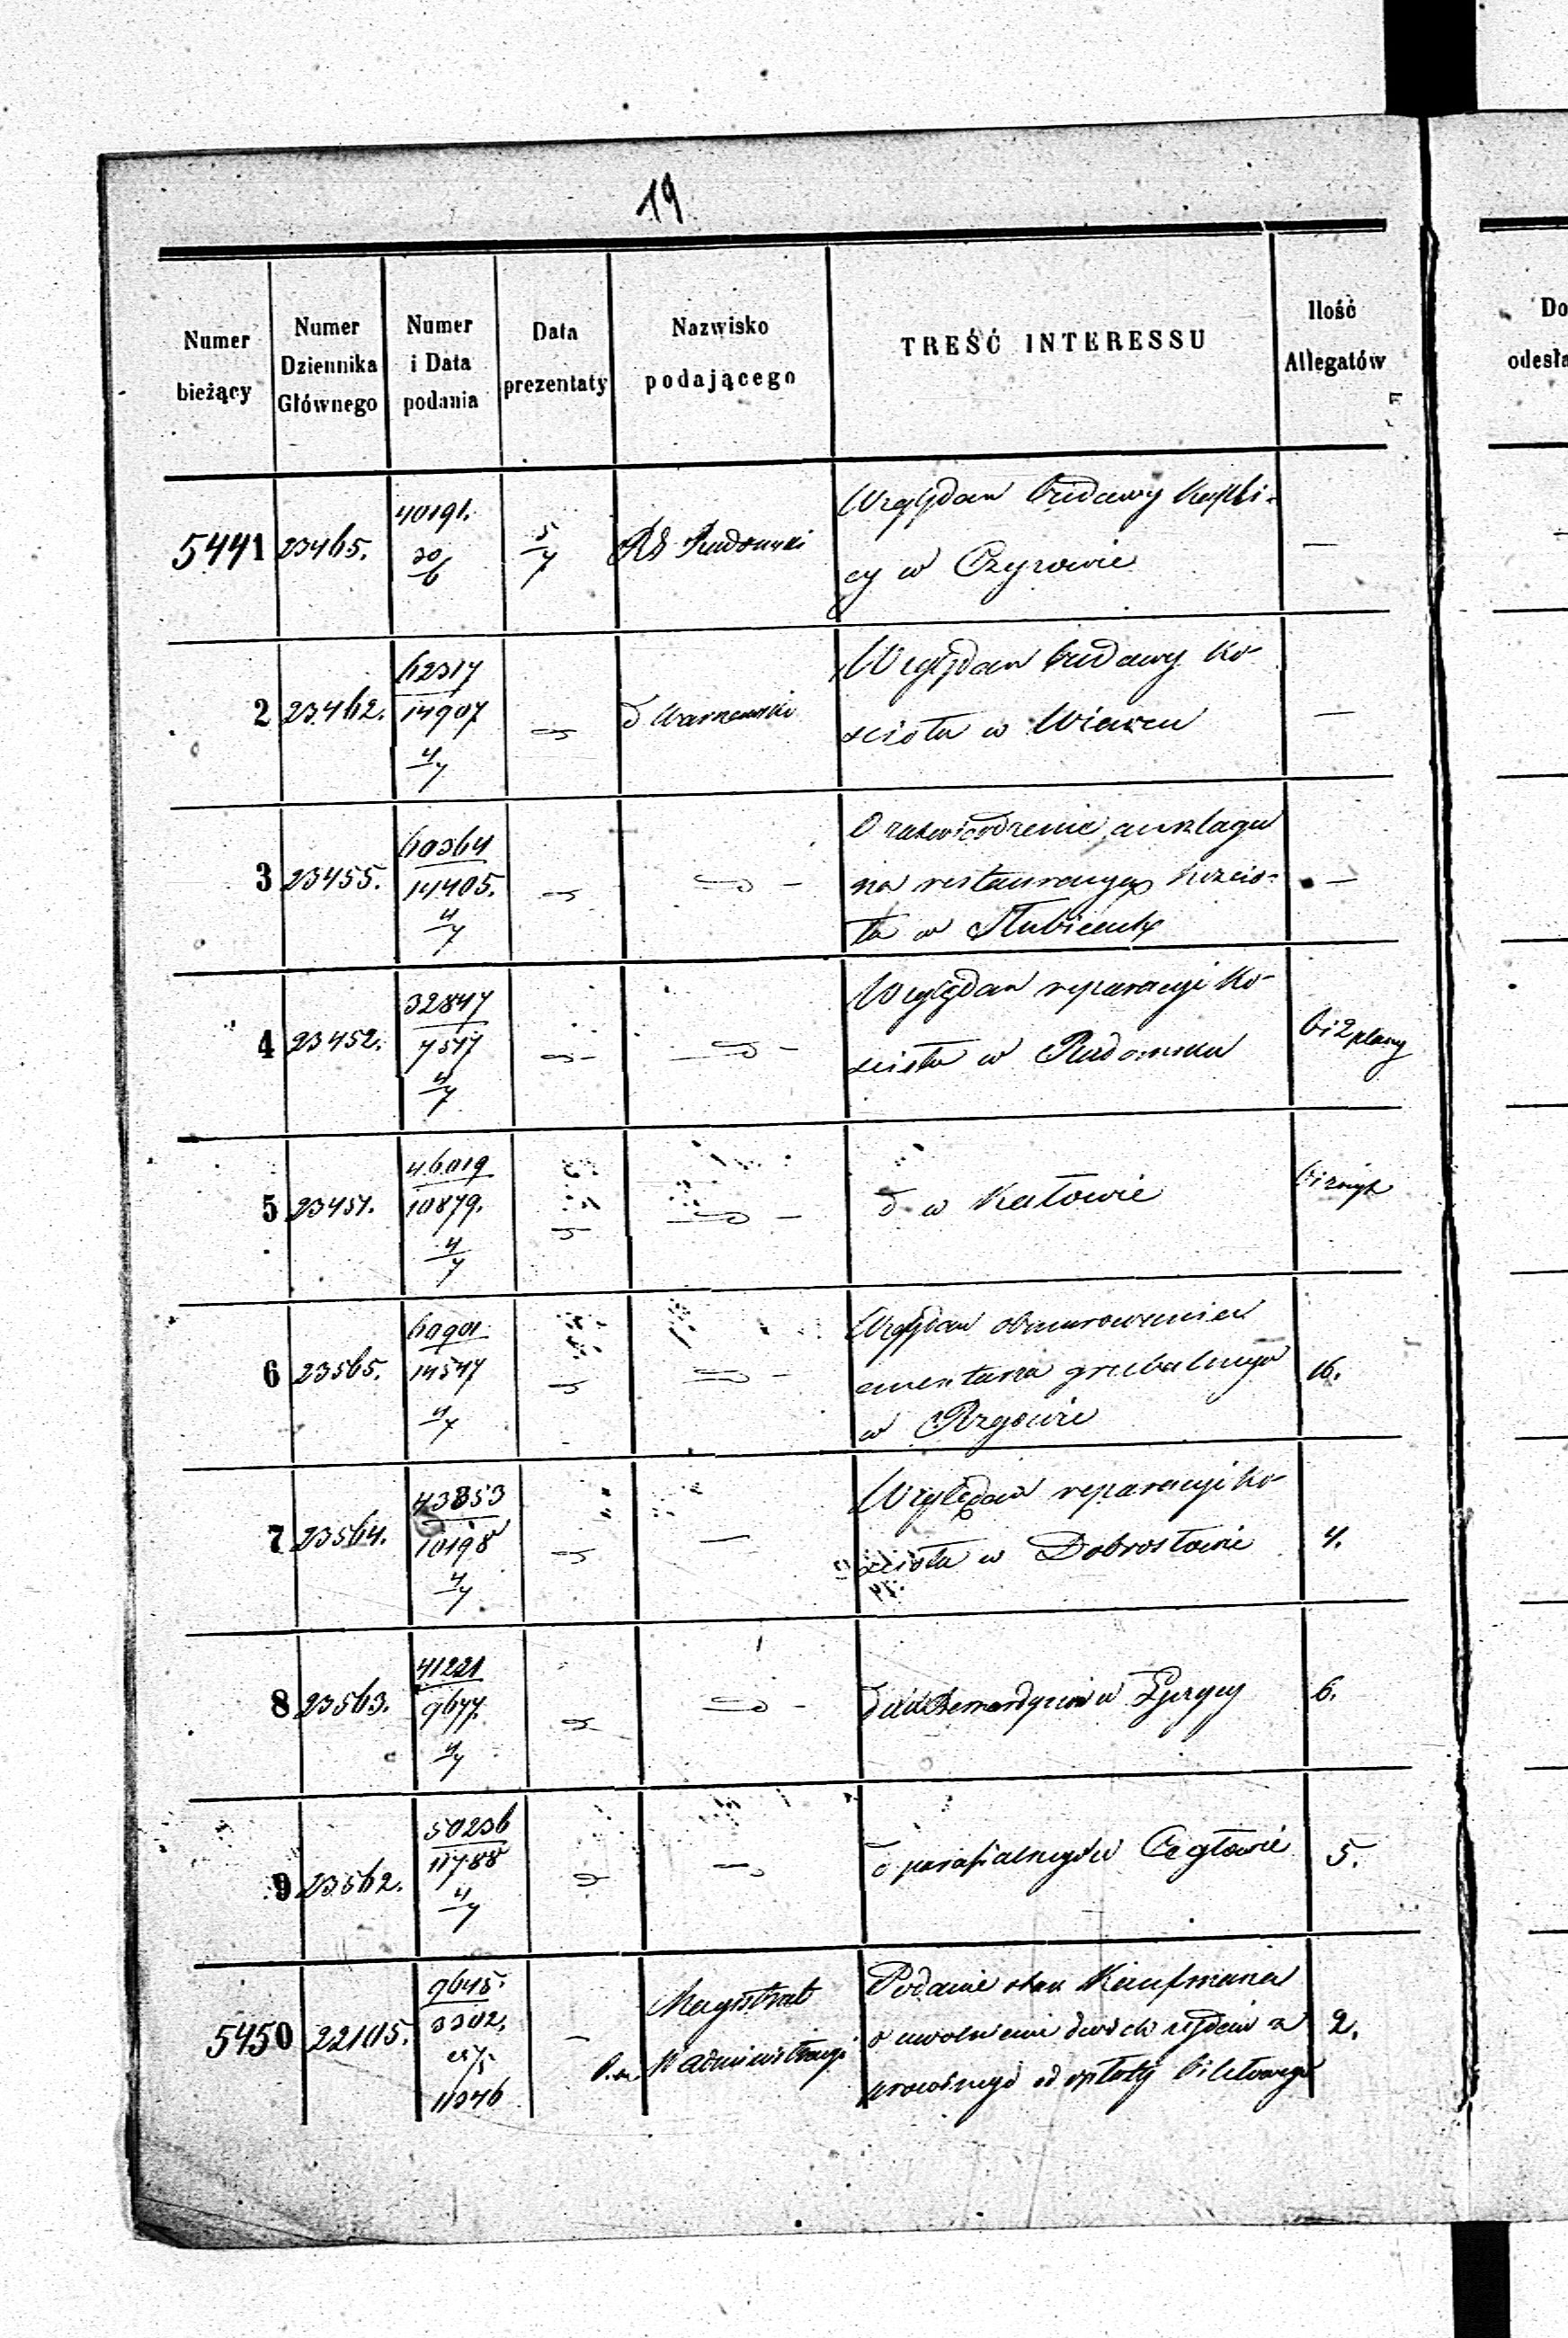 19
Numer bieżący
Numer Dziennika Głównego
Numer i Data podania
Data prezentaty
Nazwisko podającego
TREŚĆ INTERESSU
Ilość Allegatów
Do
odesła
5441 23465. 40191. 30/6 5/7 RG Radomski
Względem budowy kapli-
cy w Czyżowie —
2 23462. 62317 14907 4/7 d Warszawski
Względem budowy ko-
ścioła w Wiązu —
3 23455. 60364 14405. 4/7
O zatwierdzenie anszlagu
na restauracyę kościo-
ła w —
4 23452. 32847 7517 4/7
Względem reparacyi ko-
ścioła w Radomsku
bi 2 plany
5 23451. 46019 10879. 4/7
d w Kałowie
6 23565. 60901 14547 4/7
Względem obmurowania
cmentarza grzebalnego
w Rzgowie
16.
7 23564. 43853 10198 4/7 —
Względem reparacyi ko-
ścioła w Dobrosłowie 4.
8 23563. 41221 9677. 4/7
Bernardynów w 6.
9 23562. 50236 11788 4/7
d parafialnego w Cegłowie 5.
5450 22105. 9645. 3302. 11346 —
Magistrat
Administracyi
Podanie Kaufmana
o uwolnienie dwóch
od opłaty biletowego
2.